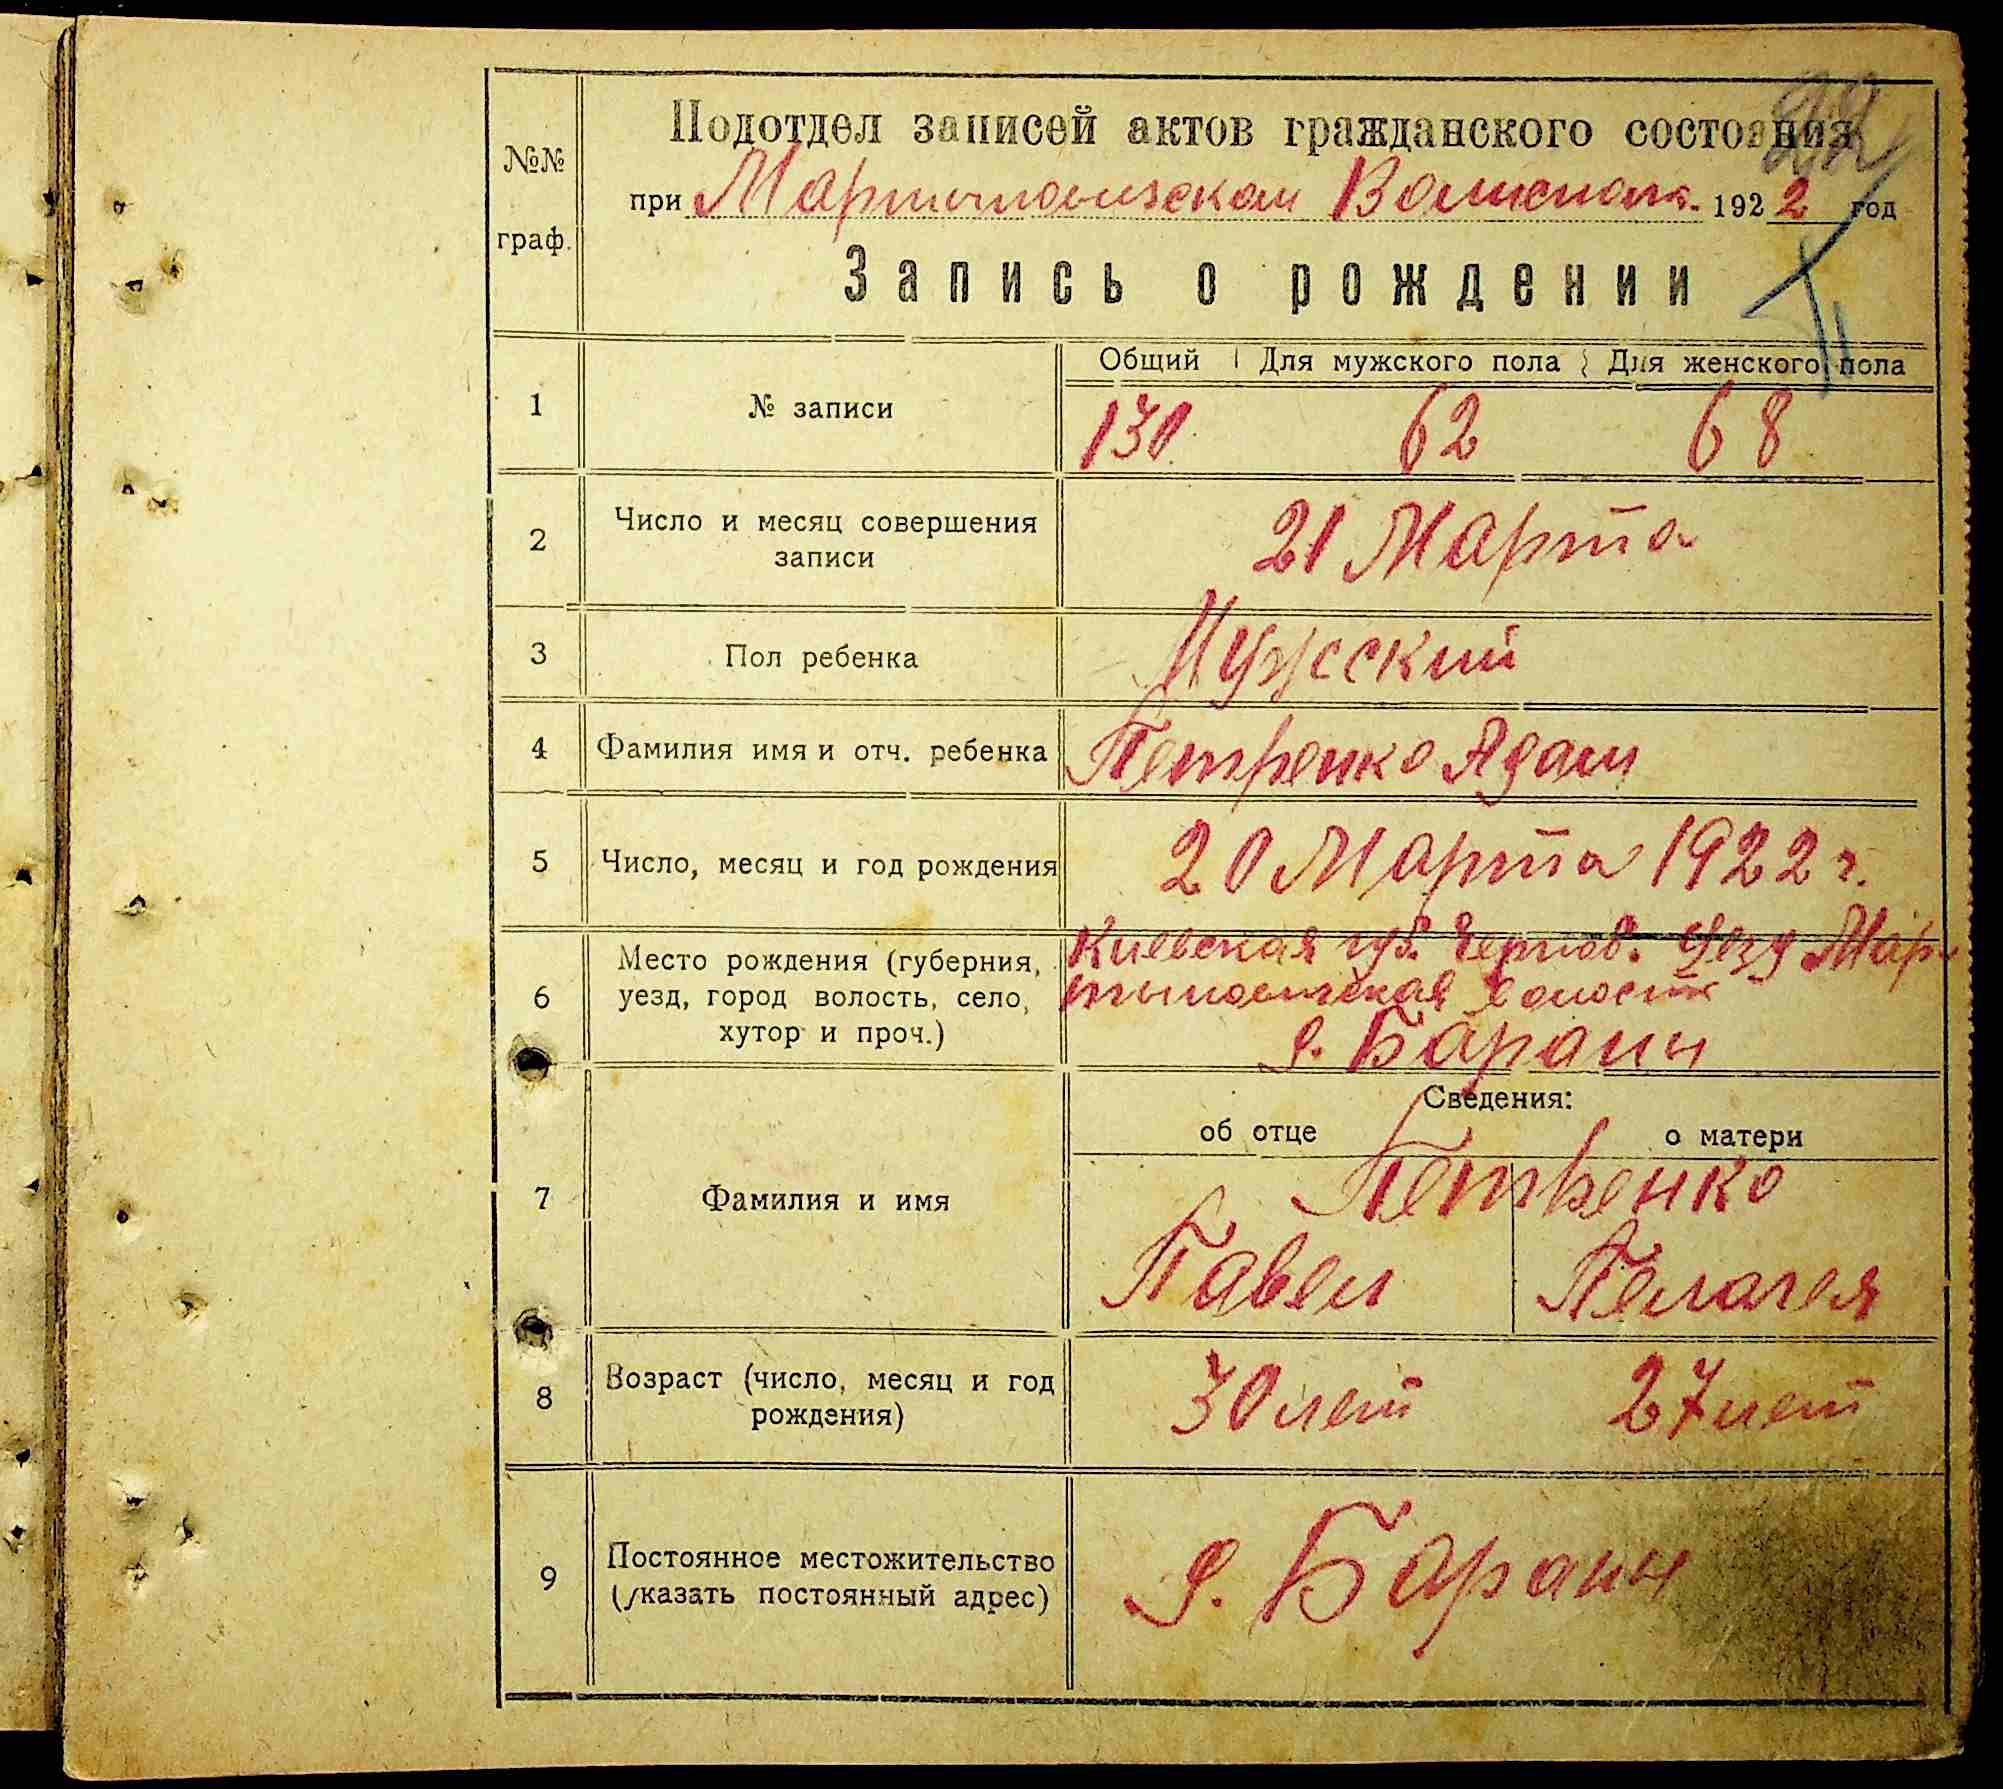 Подотдел записей актов гражданского состояния
при Мартыновизском Волисполк. 1922 год
Запись о рождении
№№ граф.
Общий Для мужского пола Для женского пола
1 № записи 130 62 68
2 Число и месяц совершения записи 21 Марта
3 Пол ребенка Мужеский
4 Фамилия имя и отч. ребенка Петренко Адам
5 Число, месяц и год рождения 20 Марта 1922 г.
6 Место рождения (губерния, уезд, город волость, село, хутор и проч.)
Киевская губ. Чернов. Уезд Мар-
тыновизская волость
д. Бараны
Сведения:
об отце о матери
7 Фамилия и имя Петренко
Павел Пелагея
8 Возраст (число, месяц и год рождения) 30 лет 27 лет
9 Постоянное местожительство (указать постоянный адрес) д. Бараны